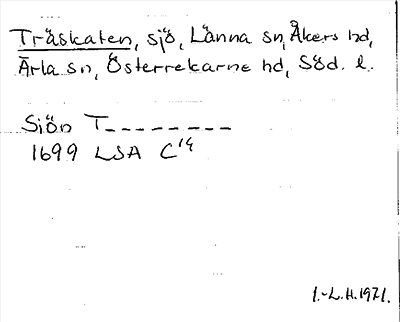 Träskaten, sjö, Länna sn, Åkers hd,
Ärla sn, Österrekarne hd, Söd. l.
Sjön T--------
1699 LSA C¹⁴
I.-L.H.1971.